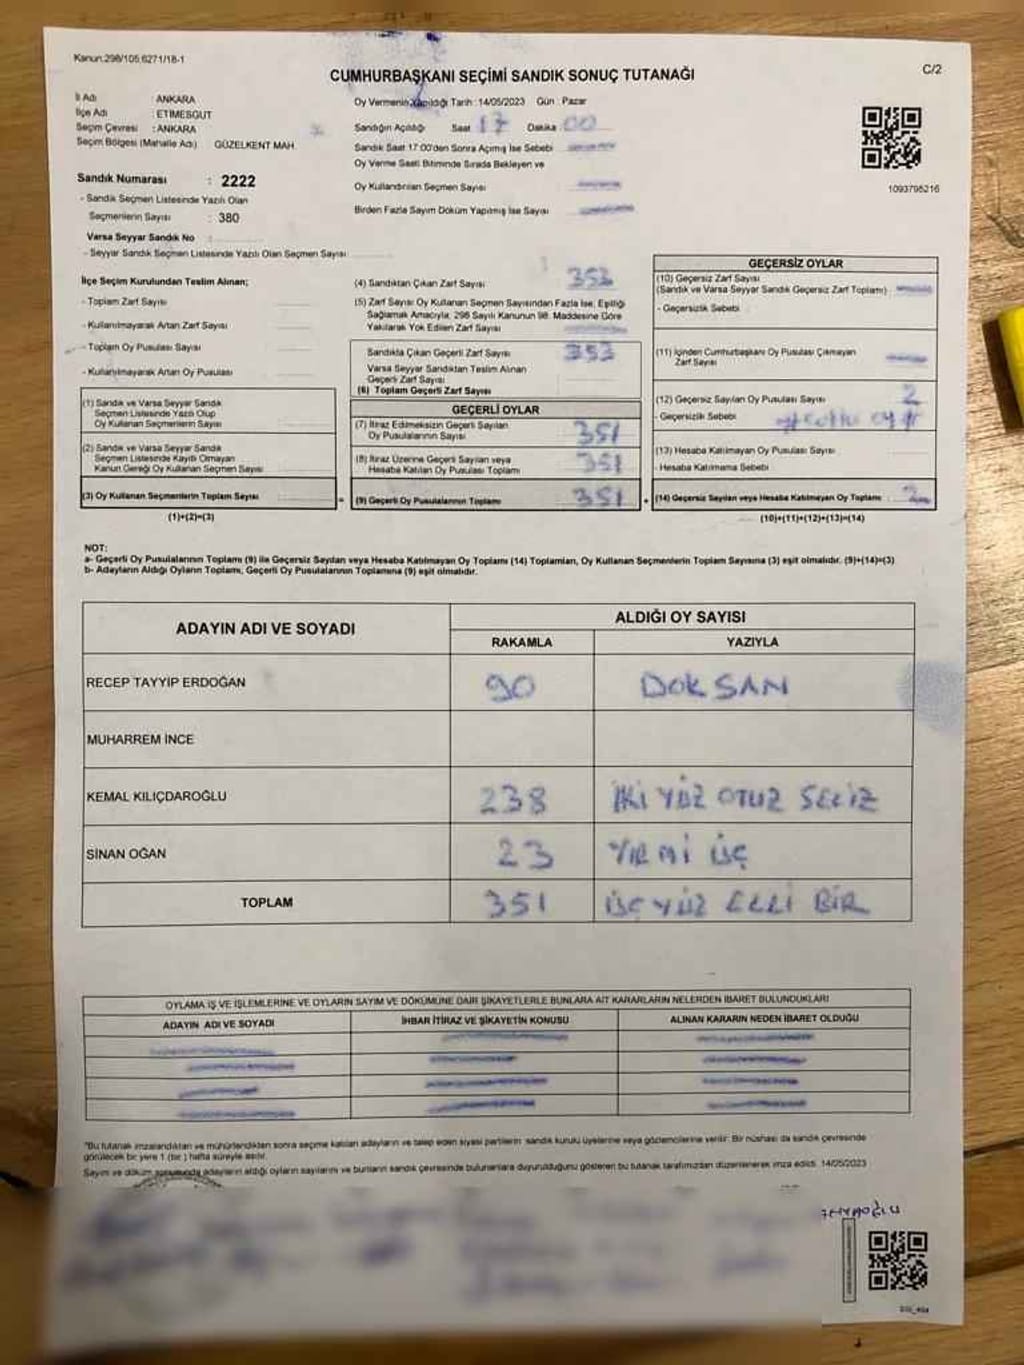 Kanun:298/105,6271/18-1
CUMHURBAŞKANI SEÇİMİ SANDIK SONUÇ TUTANAĞI
C/2
İl Adı : ANKARA
İlçe Adı : ETİMESGUT
Seçim Çevresi : ANKARA
Seçim Bölgesi (Mahalle Adı) GÜZELKENT MAH.
Sandık Numarası : 2222
- Sandık Seçmen Listesinde Yazılı Olan
Seçmenlerin Sayısı : 380
Varsa Seyyar Sandık No :
- Seyyar Sandık Seçmen Listesinde Yazılı Olan Seçmen Sayısı
Oy Vermenin Yapıldığı Tarih : 14/05/2023 Gün : Pazar
Sandığın Açıldığı Saat 17 Dakika 00
Sandık Saat 17:00'den Sonra Açımış İse Sebebi
Oy Verme Saati Bitiminde Sırada Bekleyen ve
Oy Kullandırılan Seçmen Sayısı
Birden Fazla Sayım Döküm Yapılmış İse Sayısı
1093798216
İlçe Seçim Kurulundan Teslim Alınan;
- Toplam Zarf Sayısı
- Kullanılmayarak Artan Zarf Sayısı
- Toplam Oy Pusulası Sayısı
- Kullanılmayarak Artan Oy Pusulası
(1) Sandık ve Varsa Seyyar Sandık
Seçmen Listesinde Yazılı Olup
Oy Kullanan Seçmenlerin Sayısı
(2) Sandık ve Varsa Seyyar Sandık
Seçmen Listesinde Kayıtlı Olmayan
Kanun Gereği Oy Kullanan Seçmen Sayısı
(3) Oy Kullanan Seçmenlerin Toplam Sayısı
(1)+(2)=(3)
(4) Sandıktan Çıkan Zarf Sayısı 353
(5) Zarf Sayısı Oy Kullanan Seçmen Sayısından Fazla İse, Eşitliği
Sağlamak Amacıyla, 298 Sayılı Kanunun 98. Maddesine Göre
Yakılarak Yok Edilen Zarf Sayısı
Sandıkta Çıkan Geçerli Zarf Sayısı 353
Varsa Seyyar Sandıktan Teslim Alınan
Geçerli Zarf Sayısı
(6) Toplam Geçerli Zarf Sayısı
GEÇERLİ OYLAR
(7) İtiraz Edilmeksizin Geçerli Sayılan
Oy Pusulalarının Sayısı 351
(8) İtiraz Üzerine Geçerli Sayılan veya
Hesaba Katılan Oy Pusulası Toplamı 351
= (9) Geçerli Oy Pusulalarının Toplamı 351 +
GEÇERSİZ OYLAR
(10) Geçersiz Zarf Sayısı
(Sandık ve Varsa Seyyar Sandık Geçersiz Zarf Toplamı)
- Geçersizlik Sebebi
(11) İçinden Cumhurbaşkanı Oy Pusulası Çıkmayan
Zarf Sayısı
(12) Geçersiz Sayılan Oy Pusulası Sayısı 2
- Geçersizlik Sebebi
(13) Hesaba Katılmayan Oy Pusulası Sayısı
- Hesaba Katılmama Sebebi
(14) Geçersiz Sayılan veya Hesaba Katılmayan Oy Toplamı 2
(10)+(11)+(12)+(13)=(14)
NOT:
a- Geçerli Oy Pusulalarının Toplamı (9) ile Geçersiz Sayılan veya Hesaba Katılmayan Oy Toplamı (14) Toplamları, Oy Kullanan Seçmenlerin Toplam Sayısına (3) eşit olmalıdır. (9)+(14)=(3)
b- Adayların Aldığı Oyların Toplamı, Geçerli Oy Pusulalarının Toplamına (9) eşit olmalıdır.
ADAYIN ADI VE SOYADI
ALDIĞI OY SAYISI
RAKAMLA YAZIYLA
RECEP TAYYİP ERDOĞAN 90 DOKSAN
MUHARREM İNCE
KEMAL KILIÇDAROĞLU 238 İKİ YÜZ OTUZ SEKİZ
SİNAN OĞAN 23 YİRMİ ÜÇ
TOPLAM 351 ÜÇ YÜZ ELLİ BİR
OYLAMA İŞ VE İŞLEMLERİNE VE OYLARIN SAYIM VE DÖKÜMÜNE DAİR ŞİKAYETLERLE BUNLARA AİT KARARLARIN NELERDEN İBARET BULUNDUKLARI
ADAYIN ADI VE SOYADI İHBAR İTİRAZ VE ŞİKAYETİN KONUSU ALINAN KARARIN NEDEN İBARET OLDUĞU
*Bu tutanak imzalandıktan ve mühürlendikten sonra seçime katılan adayların ve talep eden siyasi partilerin sandık kurulu üyelerine veya gözlemcilerine verilir. Bir nüshası da sandık çevresinde
görülecek bir yere 1 (bir ) hafta süreyle asılır.
Sayım ve döküm sonucunda adayların aldığı oyların sayılarını ve bunların sandık çevresinde bulunanlara duyurulduğunu gösteren bu tutanak tarafımızdan düzenlenerek imza edildi. 14/05/2023